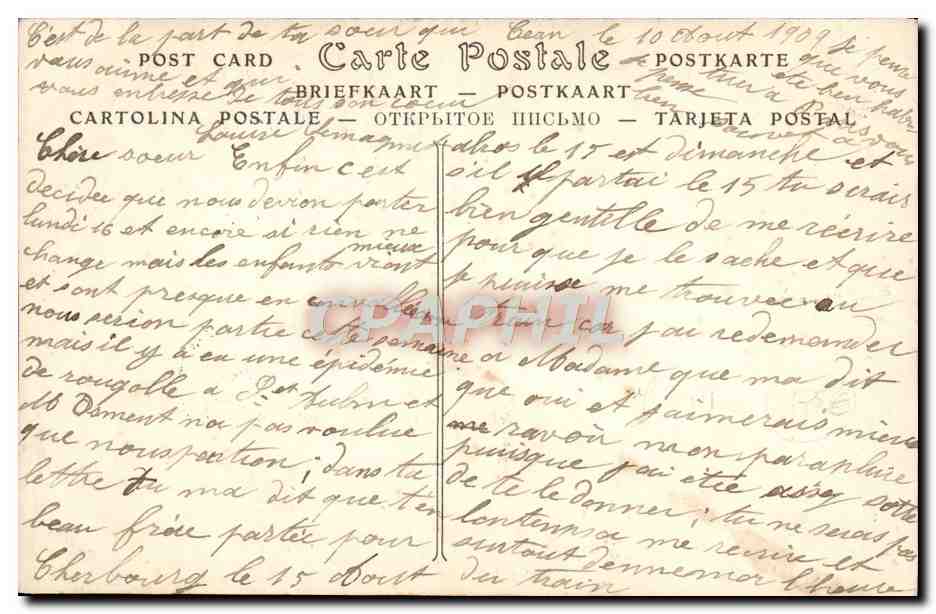 C'est de la part de ta soeur qui
vous aime et qui
vous embrasse de tous son coeur
Louise Lemagne
Caen le 10 Aout 1909 Je pense
que vous
POST CARD Carte Postale POSTKARTE
BRIEFKAART — POSTKAART
CARTOLINA POSTALE — ОТКРЫТОЕ ПИСЬМО — TARJETA POSTAL
Chère soeur Enfin c'est
decidee que nous devron parter
lundi 16 et encore si rien ne
change mais les enfants vront mieux
et sont presque en
nous serion partie cette semaine
mais il y a eu une épidémie
de rougolle a St Aubin et
M Dament na pas voulue
que nous partion; dans ta
lettre tu ma dit que t'en
beau frère partée pour
Cherbourg le 15 Aout
alros le 15 est dimanche et
s'il partai le 15 tu serais
bien gentille de me réecrire
pour que je le sache et que
je puisse me trouvée au
train car j'ai redemander
a Madame que ma dit
que oui et j'aimerais mieux
ravoir mon parapluie
puisque j'ai étée assez sotte
de te le donner; tu ne serais pas
lontemsa me recrire et
surtout dennemoi l'heure
du train
CPAPHIL